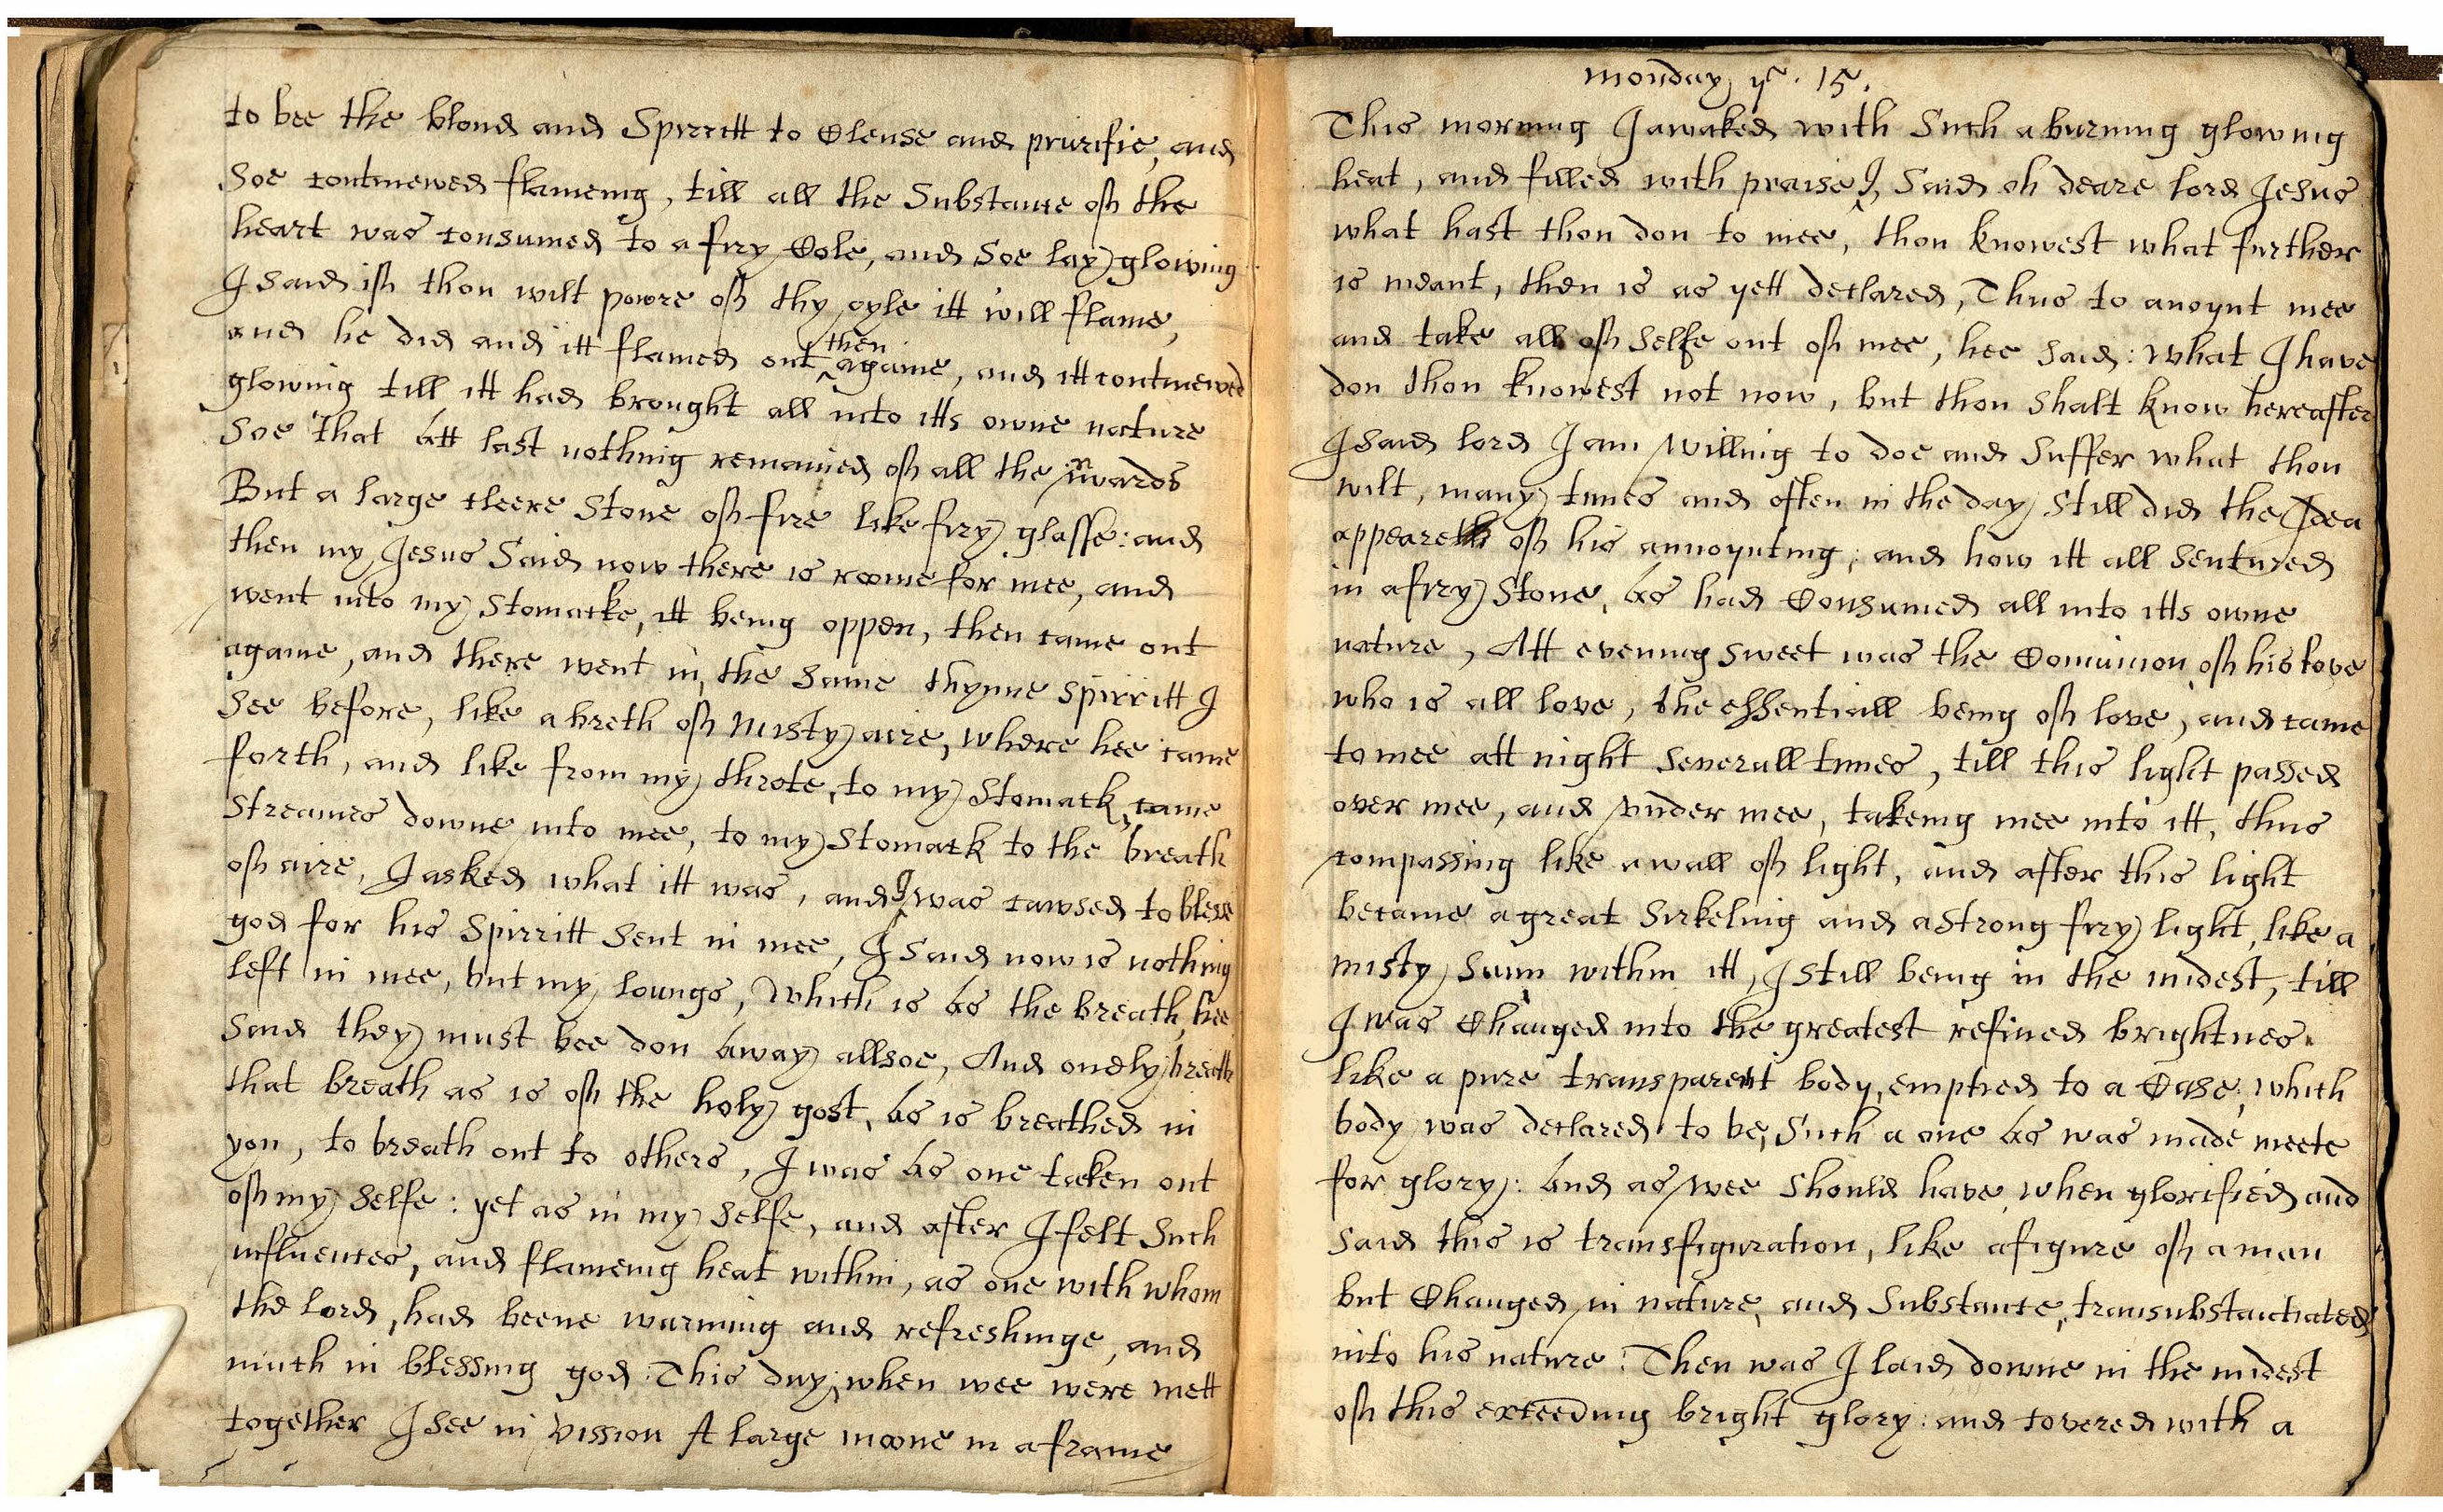 to bee the bloud and Spirritt to Clense and prurifie, and
Soe contineweд flameing, till all the Substance off the
heart was consumed to a firy Cole, and Soe lay glowing
I said iff thou wilt powre off thy oyle itt will flame,
and he did and itt flamed out then againe, and itt continewed
glowing till itt had brought all into itts owne nature
Soe that att last nothing remained off all the inwards
But a large cleere Stone off fire like firy glasse: and
then my Jesus Said now there is roome for mee, and
went into my Stomacke, itt being oppen, then came out
againe, and there went in, the same thynne Spirritt I
See before, like a breth off misty aire, where hee came
forth, and like from my throte, to my Stomack, came
Streames downe into mee, to my Stomack to the breath
off aire, I asked what itt was, and I was cawsed to bless
god for his Spirritt Sent in mee, I Said now is nothing
left in mee, but my loungs, Which is as the breath, hee
Said they must bee don away allsoe, And onely breath
that breath as is off the holy gost, as is breathed in
you, to breath out to others, I was as one taken out
off my Selfe: yet as in my Selfe, and after I felt Such
influences, and flameing heat within, as one with whom
the lord, had beene warming and refreshinge, and
much in blessing god. This day, when wee were mett
together I See in vission A large moone in a frame
monday ye. 15.
This morning I awaked with Such a burning glowing
heat, and filled with praise I, Said oh deare lord Jesus
what hast thou don to mee, thou knowest what further
is meant, then is as yett declared, Thus to anoynt mee
and take all off Selfe out off mee, hee Said: What I have
don thou knowest not now, but thou Shalt know hereafter
I Said lord I am Willing to doe and Suffer what thou
wilt, many times and often in the day Still did the Idea
appeare off his annoynting; and how itt all Sentured
in a firy Stone, as had Consumed all into itts owne
nature, Att evening Sweet was the Comunion off his love
who is all love, the essentiall being off love, and came
to mee att night Severall times, till this light passed
over mee, and under mee, takeing mee into itt, thus
compassing like a wall off light, and after this light
became a great Sirkeling and a Strong firy light, like a
misty Sunn within itt, I still being in the midest, till
I was Changed into the greatest refined brightnes.
like a pure transparent body, emptied to a Case, which
body was declared to be, Such a one as was made meete
for glory: and as wee Should have, when glorified and
Said this is transfiguration, like a figure off a man
but Changed in nature, and Substance, transubstanctiated
into his nature: Then was I laid downe in the midest
off this exceeding bright glory: and covered with a